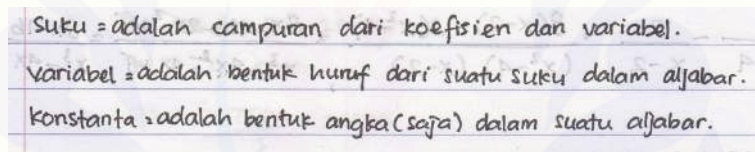 suku = adalah campuran dari koefisien dan variabel.
variabel = adalah bentuk huruf dari suatu suku dalam aljabar.
konstanta = adalah bentuk angka (saja) dalam suatu aljabar.